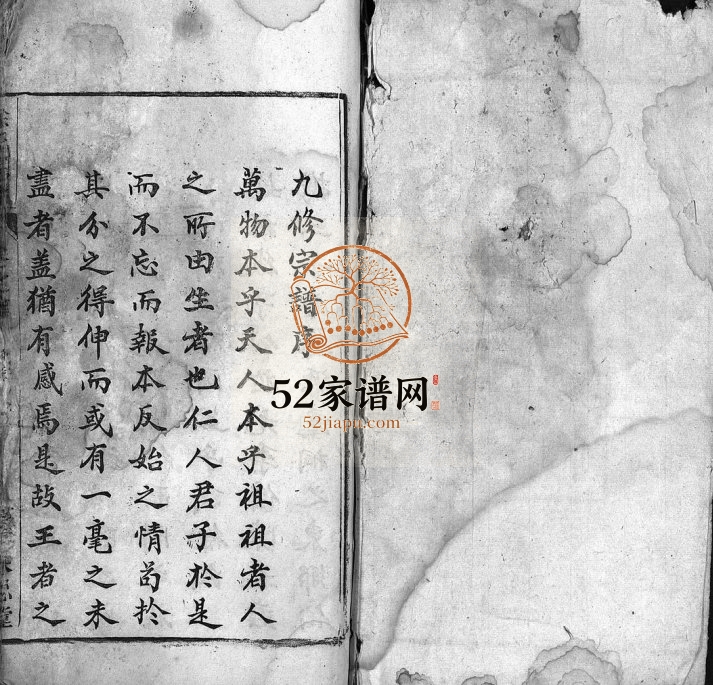 九修宗譜序
萬物本乎天人本乎祖祖者人
之所由生者也仁人君子於是
而不忘而報本反始之情苟於
其分之得伸而或有一毫之未
盡者盖猶有感焉是故王者之
52家谱网
52jiapu.com